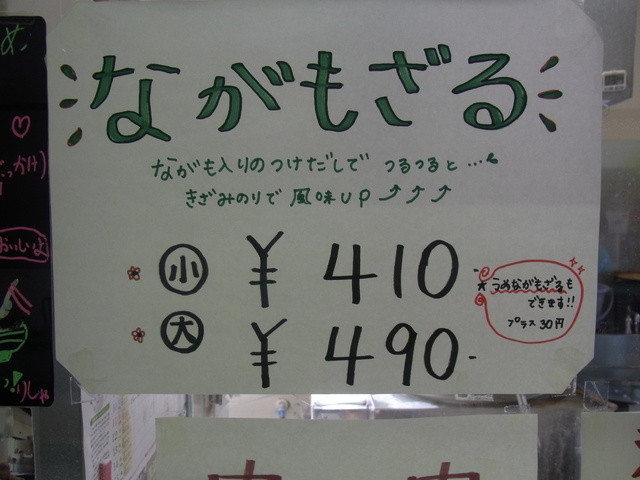 ながもざる
ながも入りのつけだしで つるつると…
きざみのりで 風味UP⤴⤴⤴
小 ¥410-
大 ¥490-
★うめながもざるも
できます!!
プラス30円
め
っかけ)
おいしよ
りしゃ